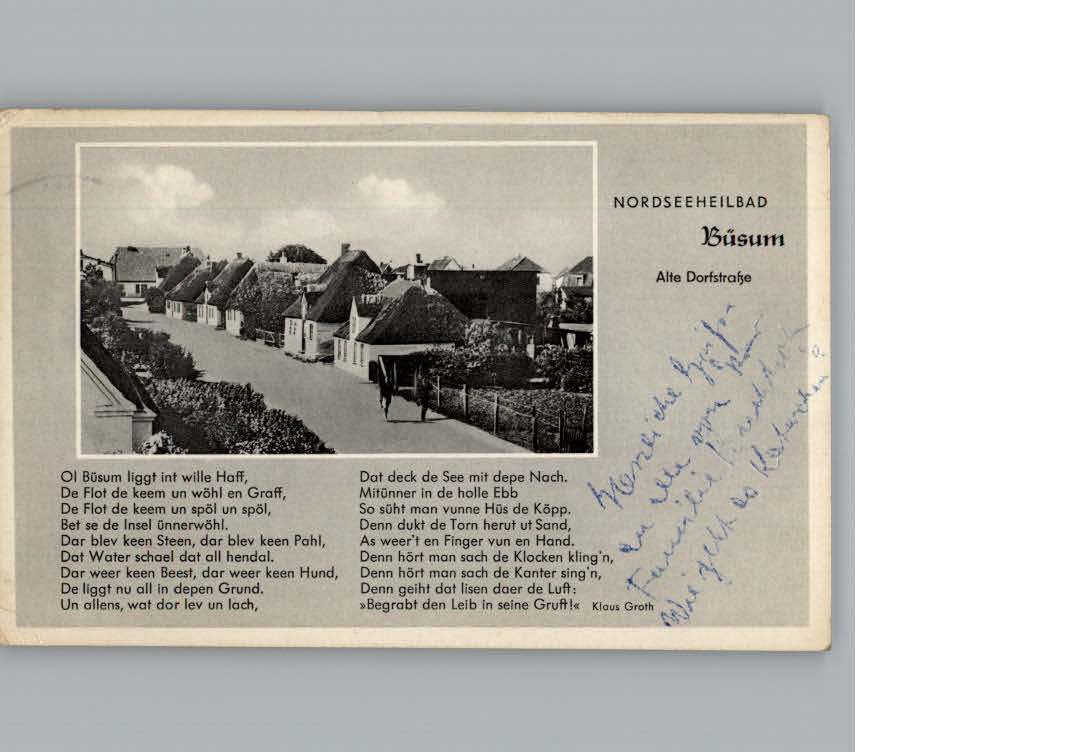 NORDSEEHEILBAD
Büsum
Alte Dorfstraße
Ol Büsum liggt int wille Haff,
De Flot de keem un wöhl en Graff,
De Flot de keem un spöl un spöl,
Bet se de Insel ünnerwöhl.
Dar blev keen Steen, dar blev keen Pahl,
Dat Water schael dat all hendal.
Dar weer keen Beest, dar weer keen Hund,
De liggt nu all in depen Grund.
Un allens, wat dor lev un lach,
Dat deck de See mit depe Nach.
Mitünner in de holle Ebb
So süht man vunne Hüs de Köpp.
Denn dukt de Torn herut ut Sand,
As weer't en Finger vun en Hand.
Denn hört man sach de Klocken kling'n,
Denn hört man sach de Kanter sing'n,
Denn geiht dat lisen daer de Luft:
»Begrabt den Leib in seine Gruft!« Klaus Groth
Herzliche Grüße
an alle von
Familie
Wie geht es